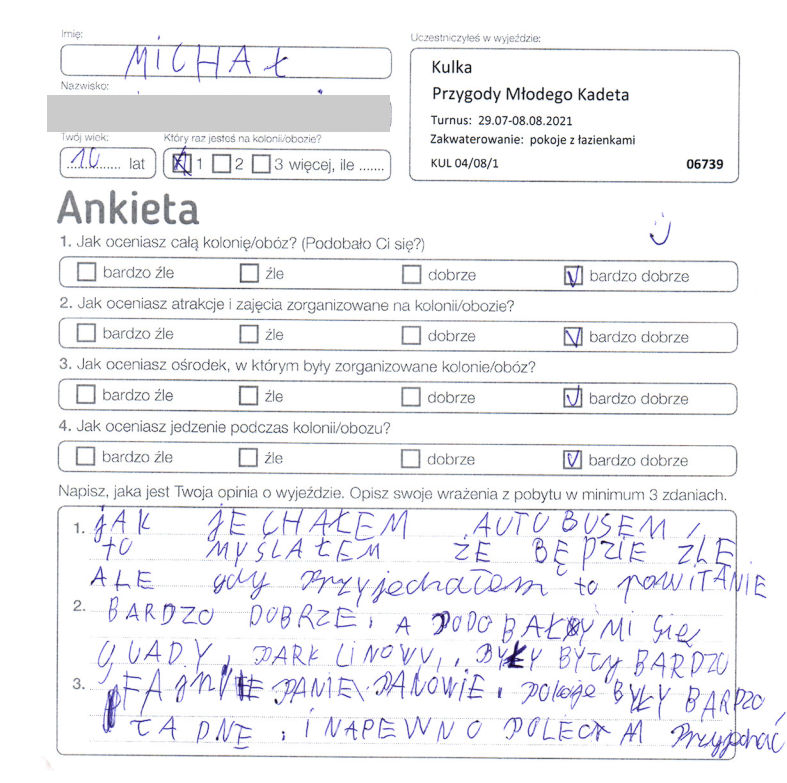 Imię:
MICHAŁ
Nazwisko:
Twój wiek:
10 lat
Który raz jesteś na kolonii/obozie?
1 2 3 więcej, ile .......
Uczestniczyłeś w wyjeździe:
Kulka
Przygody Młodego Kadeta
Turnus: 29.07-08.08.2021
Zakwaterowanie: pokoje z łazienkami
KUL 04/08/1 06739
Ankieta
1. Jak oceniasz całą kolonię/obóz? (Podobało Ci się?)
bardzo źle źle dobrze bardzo dobrze
2. Jak oceniasz atrakcje i zajęcia zorganizowane na kolonii/obozie?
bardzo źle źle dobrze bardzo dobrze
3. Jak oceniasz ośrodek, w którym były zorganizowane kolonie/obóz?
bardzo źle źle dobrze bardzo dobrze
4. Jak oceniasz jedzenie podczas kolonii/obozu?
bardzo źle źle dobrze bardzo dobrze
Napisz, jaka jest Twoja opinia o wyjeździe. Opisz swoje wrażenia z pobytu w minimum 3 zdaniach.
1. jAK JECHAŁEM AUTOBUSEM,
to MYŚLAŁEM ŻE BĘDZIE ŹLE
ALE gdy Przyjechałem to powITANIE
2. BARDZO DOBRZE, A PODOBAŁY MI Się
QUADY, PARK LINOWY, BYŁY BYŁY BARDZO
3. FAJNE PANIE, PANOWIE, pokoje BYŁY BARDZO
ŁADNE, I NAPEWNO POLECAM Przyjechać